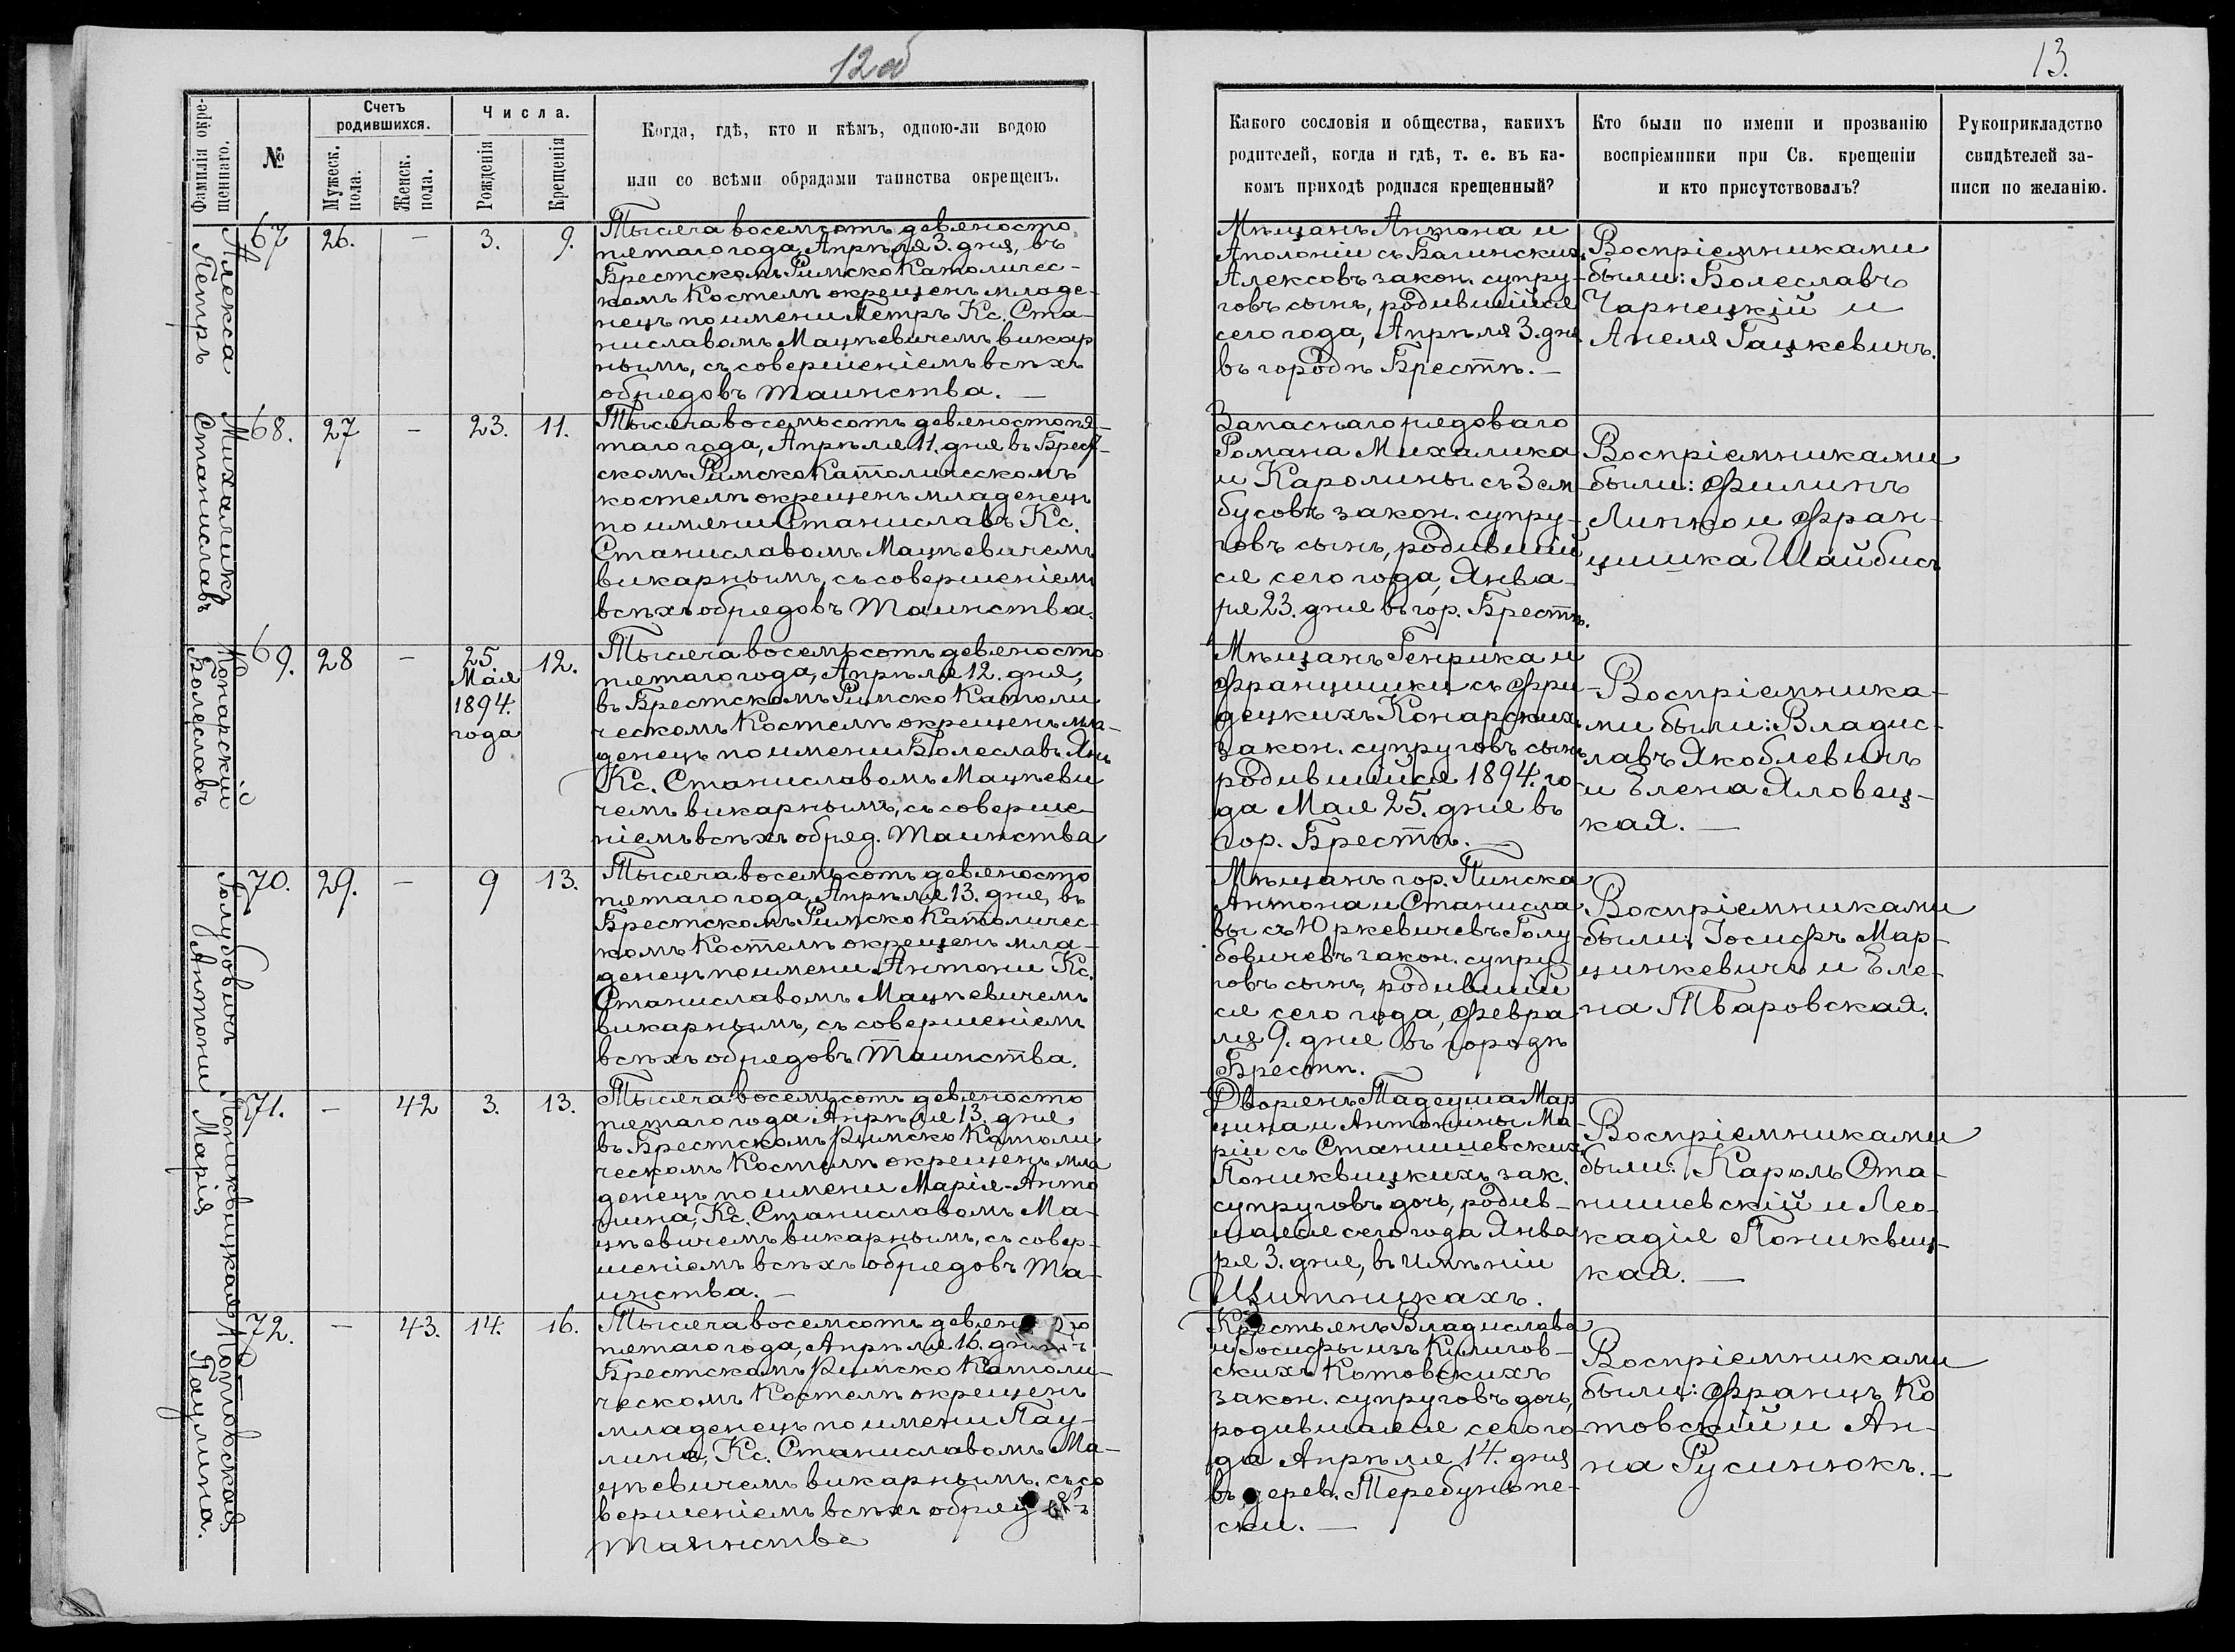 12 об
13.
Фамилія окре-
щеннаго.
№
Счетъ
родившихся.
Мужеск.
пола.
Женск.
пола.
Числа.
Рожденія
Крещенія
Когда, гдѣ, кто и кѣмъ, одною-ли водою
или со всѣми обрядами таинства окрещенъ.
Какого сословія и общества, какихъ
родителей, когда и гдѣ, т. е. въ ка-
комъ приходѣ родился крещенный?
Кто были по имени и прозванію
воспріемники при Св. крещеніи
и кто присутствовалъ?
Рукоприкладство
свидѣтелей за-
писи по желанію.
Алекса
Петръ
67
26.
—
3.
9.
Тысяча восемсотъ девяносто
пятаго года, Апрѣля 3. дня, въ
Брестскомъ Римско Католичес-
комъ Костелѣ окрещенъ младе-
нецъ по имени Петръ Кс. Ста-
ниславомъ Мацѣевичемъ викар
нымъ, съ совершеніемъ всѣхъ
обрядовъ таинства. —
Мѣщанъ Антона и
Аполоніи съ Багинскихъ
Алексовъ закон. супру-
говъ сынъ, родившійся
сего года, Апрѣля 3. дня
въ городѣ Брестѣ. —
Воспріемниками
были: Болеславъ
Чарнецкій и
Анеля Гацкевичъ.
Михаликъ
Станиславъ
68.
27
—
23.
11.
Тысяча восемьсотъ девяносто пя-
таго года, Апрѣля 11. дня въ Брест-
скомъ Римско Католическомъ
костелѣ окрещенъ младенецъ
по имени Станиславъ Кс.
Станиславомъ Мацѣевичемъ
викарнымъ, съ совершеніемъ
всѣхъ обрядовъ таинства.
Запаснаго рядоваго
Романа Михалика
и Каролины съ Зем
бусовъ закон. супру-
говъ сынъ, родившій
ся сего года, Янва-
ря 23. дня въ гор. Брестѣ.
Воспріемниками
были: Филипъ
Липко и Фран-
цишка Шайбисъ
Конарскій
Болеславъ
69.
28
—
25.
Мая
1894.
года
12.
Тысяча восемьсотъ девяносто
пятаго года, Апрѣля 12. дня,
въ Брестскомъ Римско Католи
ческомъ Костелѣ окрещенъ мла-
денецъ по имени Болеславъ Янъ
Кс. Станиславомъ Мацѣеви
чемъ викарнымъ, съ соверше-
ніемъ всѣхъ обряд. таинства
Мѣщанъ Генрика и
Францишки съ Фри-
децкихъ Конарскихъ
закон. супруговъ сынъ
родившійся 1894. го-
да Мая 25. дня въ
гор. Брестѣ. —
Воспріемника-
ми были: Владис-
лавъ Якоблевичъ
и Елена Яловец-
кая. —
Голубовичъ
Антони
70.
29.
—
9
13.
Тысяча восемьсотъ девяносто
пятаго года, Апрѣля 13. дня, въ
Брестскомъ Римско Католичес-
комъ Костелѣ окрещенъ мла-
денецъ по имени Антони Кс.
Станиславомъ Мацѣевичемъ
викарнымъ, съ совершеніемъ
всѣхъ обрядовъ таинства.
Мѣщанъ гор. Пинска
Антона и Станисла
вы съ Юркевичевъ Голу
бовичевъ закон. супру-
говъ сынъ, родившій
ся сего года, Февра
ля 9. дня въ городѣ
Брестѣ. —
Воспріемниками
были: Іосифъ Мар-
цинкевичъ и Еле-
на Тваровская.
Пониквицкая
Марія
71.
—
42
3.
13.
Тысяча восемьсотъ девяносто
пятаго года Апрѣля 13. дня
въ Брестскомъ Римско Католи
ческомъ Костелѣ окрещенъ мла
денецъ по имени Марія-Анто
нина, Кс. Станиславомъ Ма-
цѣевичемъ викарнымъ, съ совер-
шеніемъ всѣхъ обрядовъ та-
инства. —
Дворянъ Тадеуша Мар
цина и Антонины Ма-
ріи съ Станишевскихъ
Пониквицкихъ зак.
супруговъ дочь, родив-
шаяся сего года Янва
ря 3. дня, въ имѣніи
Щитникахъ.
Воспріемниками
были: Кароль Ста-
нишевскій и Лео-
кадія Пониквиц-
кая. —
Котовская
Паулина.
72.
—
43.
14.
16.
Тысяча восемсотъ девян
пятаго года, Апрѣля 16. дня
Брестскомъ Римско Католи-
ческомъ Костелѣ окрещенъ
младенецъ по имени Пау-
лина, Кс. Станиславомъ Ма-
цѣевичемъ викарнымъ, съ со
вершеніемъ всѣхъ обряд
таинства
Крестьянъ Владислава
и Іосифы изъ Кулигов-
скихъ Котовскихъ
закон. супруговъ дочь,
родившаяся сего го-
да Апрѣля 14. дня
въ дерев. Теребунь пе-
ски. —
Воспріемниками
были: Францъ Ко
товскій и Ан-
на Русинюкъ. —